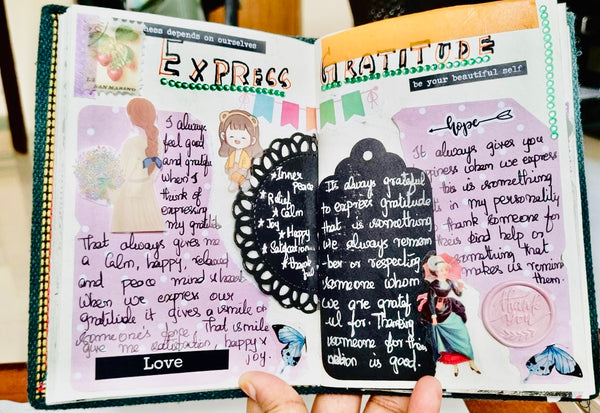 ness depends on ourselves
SAN MARINO
EXPRESS GRATITUDE
be your beautiful self
I always
feel good
and grateful
when I
think of
expressing
my gratitude
That always gives me
a calm, happy, relaxed
and peace mind & heart
when we express our
gratitude it gives a smile on
someone's face. That smile
give me satisfaction, happy &
joy.
Love
Inner
peace
Relief
Calm
Joy
Happy
thank
ful
Its always grateful
to express gratitude
that is something
we always remem
ber or praising
someone whom
we are gratef
ul for. Thanking
someone for their
action is good.
hope
It always gives you
piness when we express
this is something
it in my personality
thank someone for
their kind help or
something that
makes us remind
them.
Thank
you